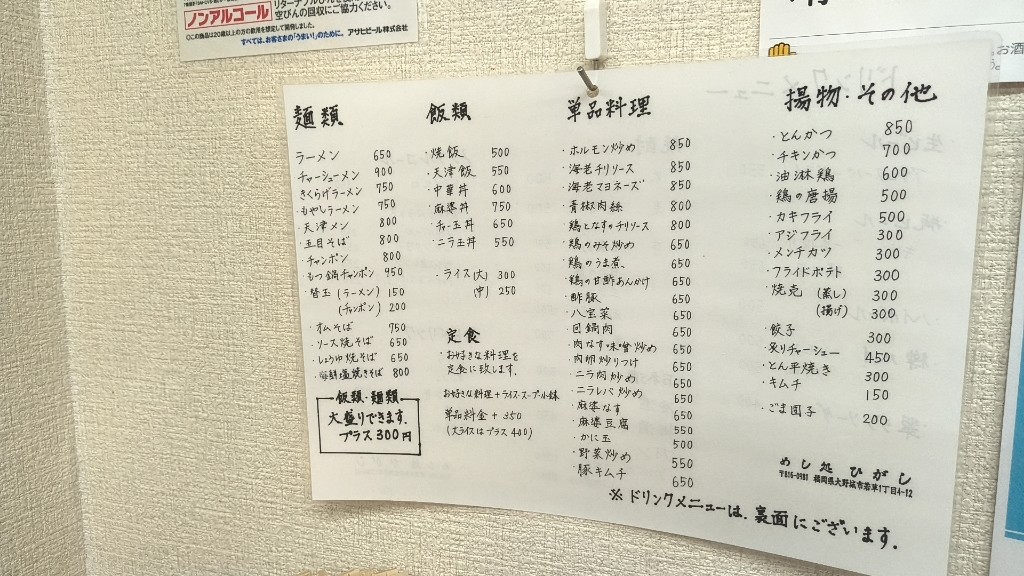 ノンアルコール
空びんの回収にご協力ください。
◎この商品は20歳以上の方の飲用を想定して開発しました。
すべては、お客さまの「うまい!」のために。 アサヒビール株式会社
お酒
麺類
ラーメン 650
チャーシューメン 900
きくらげラーメン 750
・もやしラーメン 750
・天津メン 800
・五目そば 800
・チャンポン 800
・もつ鍋チャンポン 950
・替玉 (ラーメン) 150
(チャンポン) 200
・オムそば 750
・ソース焼そば 650
・しょうゆ焼そば 650
・海鮮塩焼きそば 800
飯類・麺類
大盛りできます.
プラス300円
飯類
・焼飯 500
・天津飯 550
・中華丼 600
・麻婆丼 750
・チャー玉丼 650
・ニラ玉丼 550
・ライス(大) 300
(中) 250
定食
・お好きな料理を
定食に致します.
お好きな料理+ライス・スープ・小鉢
単品料金+350
(大ライスはプラス400)
単品料理
・ホルモン炒め 850
・海老チリソース 850
・海老マヨネーズ 850
・青椒肉絲 800
・鶏となすのチリソース 800
・鶏のみそ炒め 650
・鶏のうま煮 650
・鶏の甘酢あんかけ 650
・酢豚 650
・八宝菜 650
・回鍋肉 650
・肉なす味噌炒め 650
・肉卵炒りつけ 650
・ニラ肉炒め 650
・ニラレバ炒め 650
・麻婆なす 650
・麻婆豆腐 550
・かに玉 500
・野菜炒め 550
・豚キムチ 650
揚物・その他
・とんかつ 850
・チキンかつ 700
・油淋鶏 600
・鶏の唐揚 500
・カキフライ 500
・アジフライ 300
・メンチカツ 300
・フライドポテト 300
・焼売 (蒸し) 300
(揚げ) 300
・餃子 300
・炙りチャーシュー 450
・とん平焼き 300
・キムチ 150
・ごま団子 200
めし処 ひがし
〒816-0981 福岡県大野城市若草1丁目4-12
※ドリンクメニューは、裏面にございます.